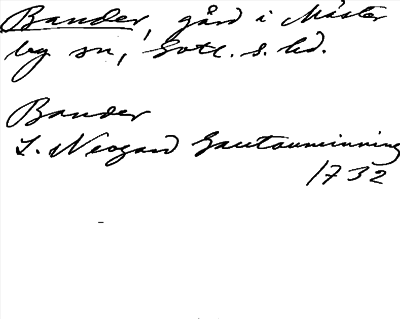 Bander, gård i Mäster
by sn, Gotl. s. hd.
Bander
L. Neogard Gautauminning
1732